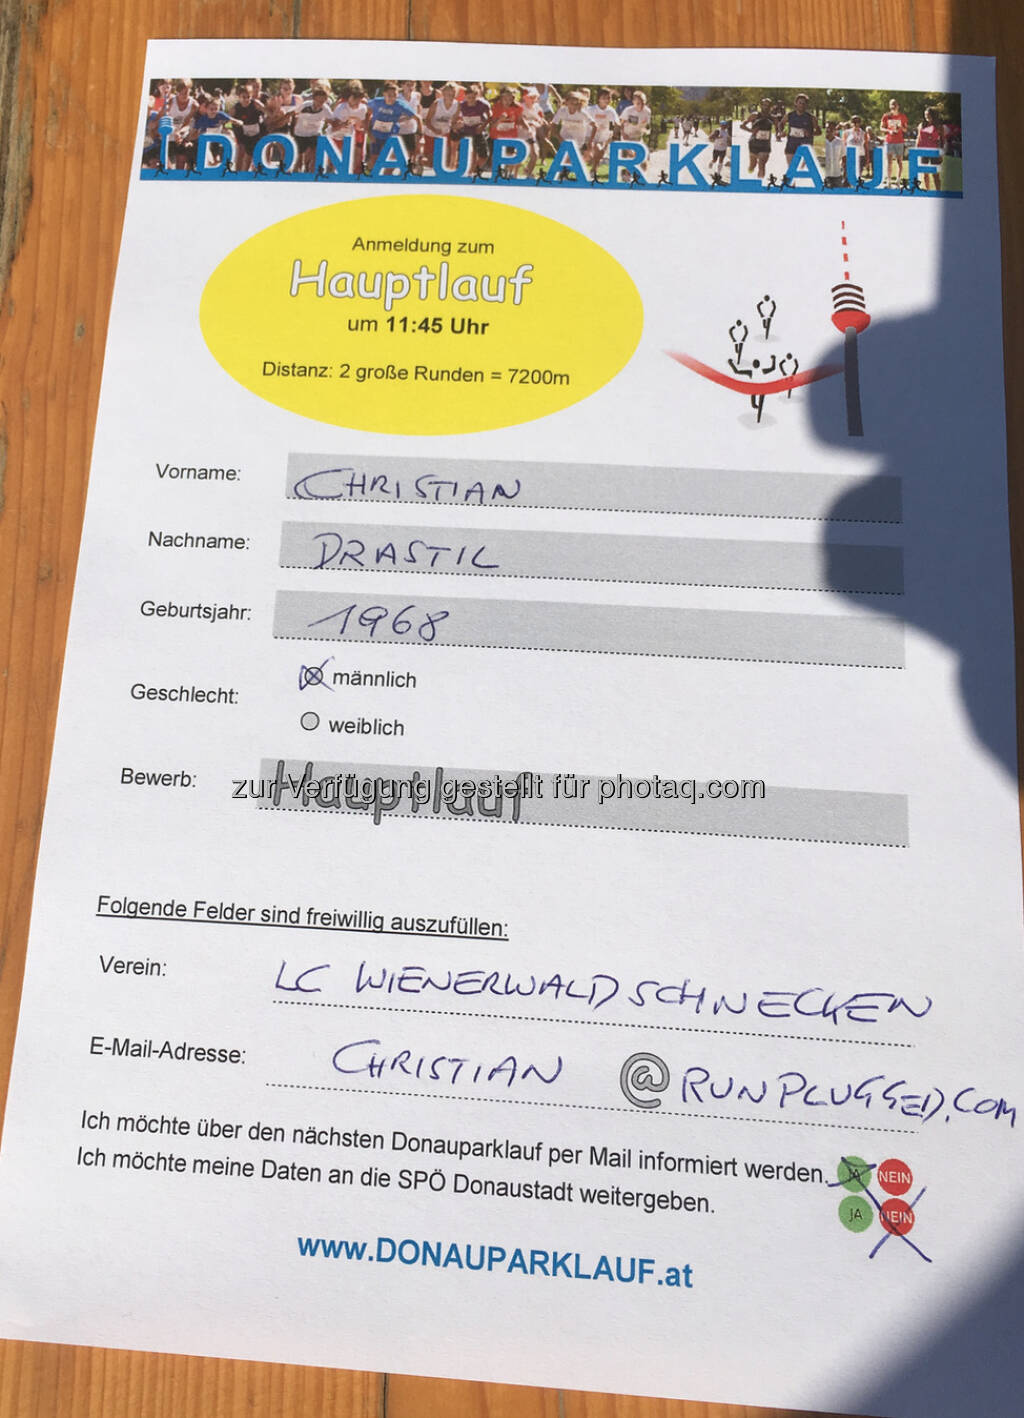 DONAUPARKLAUF
Anmeldung zum
Hauptlauf
um 11:45 Uhr
Distanz: 2 große Runden = 7200m
Vorname: CHRISTIAN
Nachname: DRASTIL
Geburtsjahr: 1968
Geschlecht: männlich
weiblich
Bewerb: Hauptlauf
zur Verfügung gestellt für photaq.com
Folgende Felder sind freiwillig auszufüllen:
Verein: LC WIENERWALDSCHNECKEN
E-Mail-Adresse: CHRISTIAN @ RUNPLUGGED.COM
Ich möchte über den nächsten Donauparklauf per Mail informiert werden. JA NEIN
Ich möchte meine Daten an die SPÖ Donaustadt weitergeben. JA NEIN
www.DONAUPARKLAUF.at